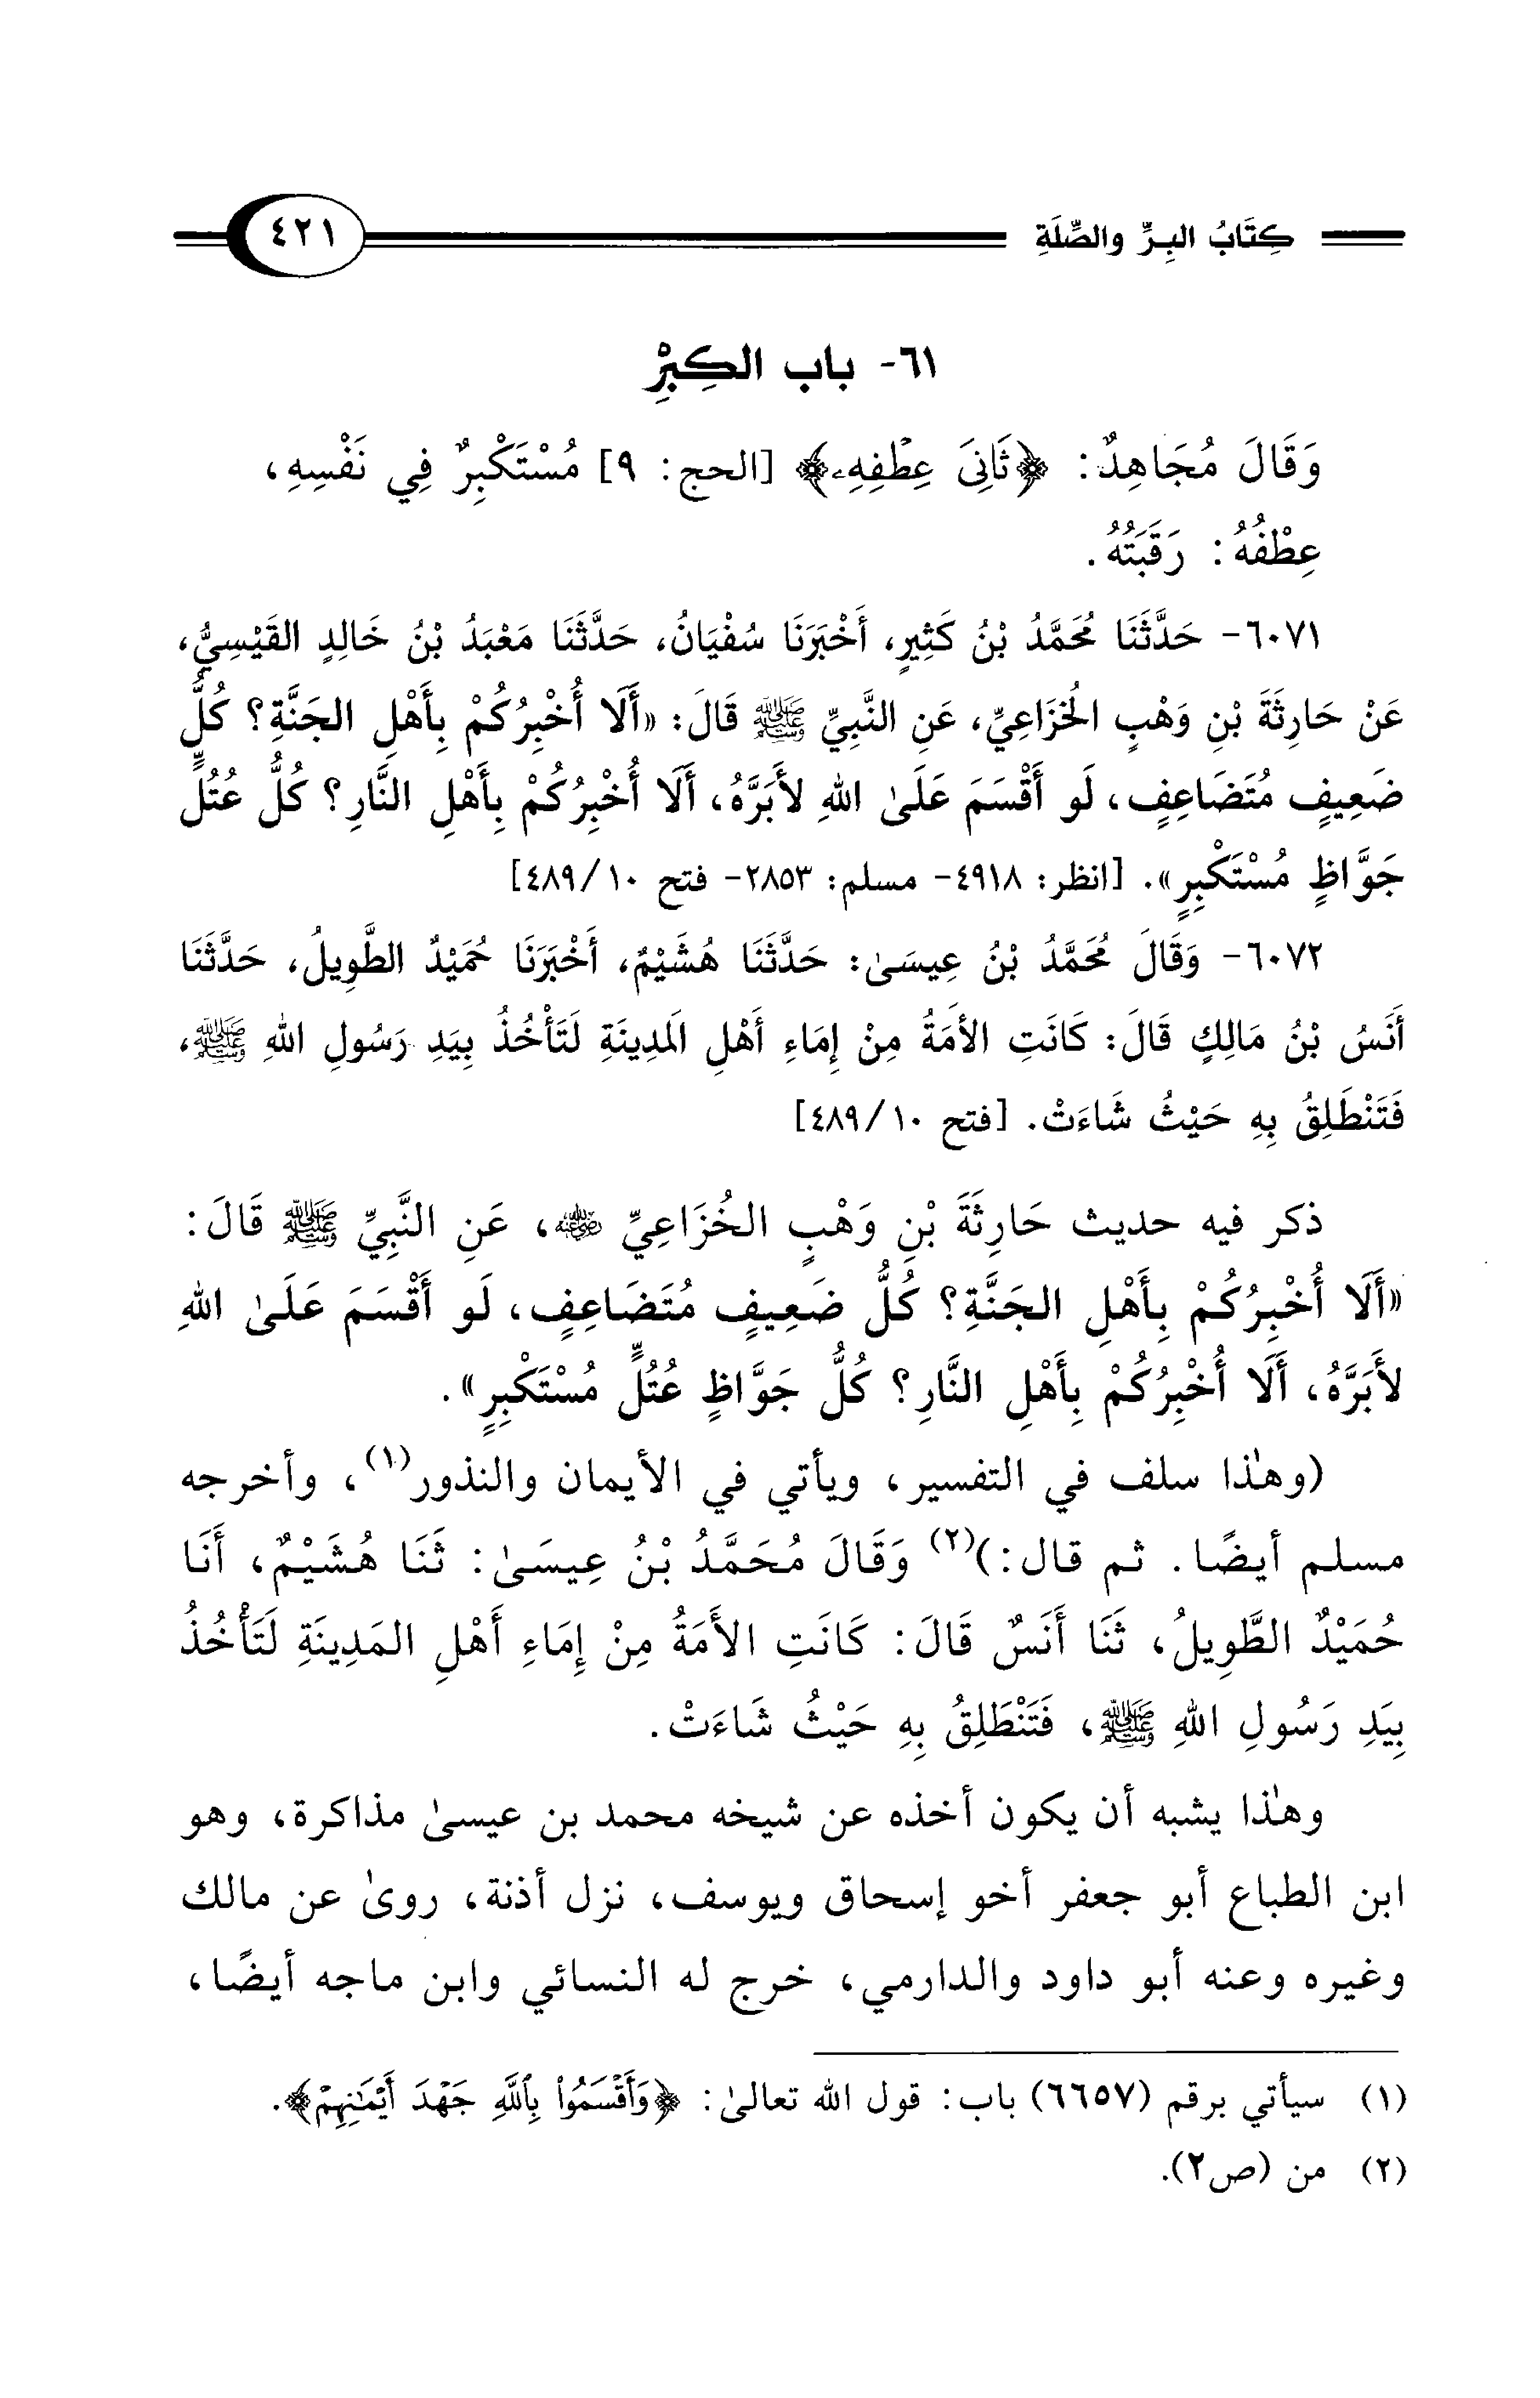 كِتَابُ البِرِّ والصِّلَةِ ٤٢١
٦١- باب الكِبْرِ
وَقَالَ مُجَاهِدٌ: ﴿ثَانِيَ عِطْفِهِۦ﴾ [الحج: ٩] مُسْتَكْبِرٌ فِي نَفْسِهِ،
عِطْفُهُ: رَقَبَتُهُ.
٦٠٧١- حَدَّثَنَا مُحَمَّدُ بْنُ كَثِيرٍ، أَخْبَرَنَا سُفْيَانُ، حَدَّثَنَا مَعْبَدُ بْنُ خَالِدٍ القَيْسِيُّ،
عَنْ حَارِثَةَ بْنِ وَهْبٍ الخُزَاعِيِّ، عَنِ النَّبِيِّ ﷺ قَالَ: «أَلَا أُخْبِرُكُمْ بِأَهْلِ الجَنَّةِ؟ كُلُّ
ضَعِيفٍ مُتَضَاعِفٍ، لَو أَقْسَمَ عَلَىٰ اللهِ لأَبَرَّهُ، أَلَا أُخْبِرُكُمْ بِأَهْلِ النَّارِ؟ كُلُّ عُتُلٍّ
جَوَّاظٍ مُسْتَكْبِرٍ». [انظر: ٤٩١٨- مسلم: ٢٨٥٣- فتح ١٠/٤٨٩]
٦٠٧٢- وَقَالَ مُحَمَّدُ بْنُ عِيسَىٰ: حَدَّثَنَا هُشَيْمٌ، أَخْبَرَنَا حُمَيْدٌ الطَّوِيلُ، حَدَّثَنَا
أَنَسُ بْنُ مَالِكٍ قَالَ: كَانَتِ الأَمَةُ مِنْ إِمَاءِ أَهْلِ المَدِينَةِ لَتَأْخُذُ بِيَدِ رَسُولِ اللهِ ﷺ،
فَتَنْطَلِقُ بِهِ حَيْثُ شَاءَتْ. [فتح ١٠/٤٨٩]
ذكر فيه حديث حَارِثَةَ بْنِ وَهْبٍ الخُزَاعِيِّ رضي الله عنه، عَنِ النَّبِيِّ ﷺ قَالَ:
«أَلَا أُخْبِرُكُمْ بِأَهْلِ الجَنَّةِ؟ كُلُّ ضَعِيفٍ مُتَضَاعِفٍ، لَو أَقْسَمَ عَلَىٰ اللهِ
لأَبَرَّهُ، أَلَا أُخْبِرُكُمْ بِأَهْلِ النَّارِ؟ كُلُّ جَوَّاظٍ عُتُلٍّ مُسْتَكْبِرٍ».
(وهذا سلف في التفسير، ويأتي في الأيمان والنذور(١)، وأخرجه
مسلم أيضًا. ثم قال:)(٢) وَقَالَ مُحَمَّدُ بْنُ عِيسَىٰ: ثَنَا هُشَيْمٌ، أَنَا
حُمَيْدٌ الطَّوِيلُ، ثَنَا أَنَسٌ قَالَ: كَانَتِ الأَمَةُ مِنْ إِمَاءِ أَهْلِ المَدِينَةِ لَتَأْخُذُ
بِيَدِ رَسُولِ اللهِ ﷺ، فَتَنْطَلِقُ بِهِ حَيْثُ شَاءَتْ.
وهذا يشبه أن يكون أخذه عن شيخه محمد بن عيسىٰ مذاكرة، وهو
ابن الطباع أبو جعفر أخو إسحاق ويوسف، نزل أذنة، روىٰ عن مالك
وغيره وعنه أبو داود والدارمي، خرج له النسائي وابن ماجه أيضًا،
(١) سيأتي برقم (٦٦٥٧) باب: قول الله تعالىٰ: ﴿وَأَقْسَمُوا۟ بِٱللَّهِ جَهْدَ أَيْمَـٰنِهِمْ﴾.
(٢) من (ص٢).